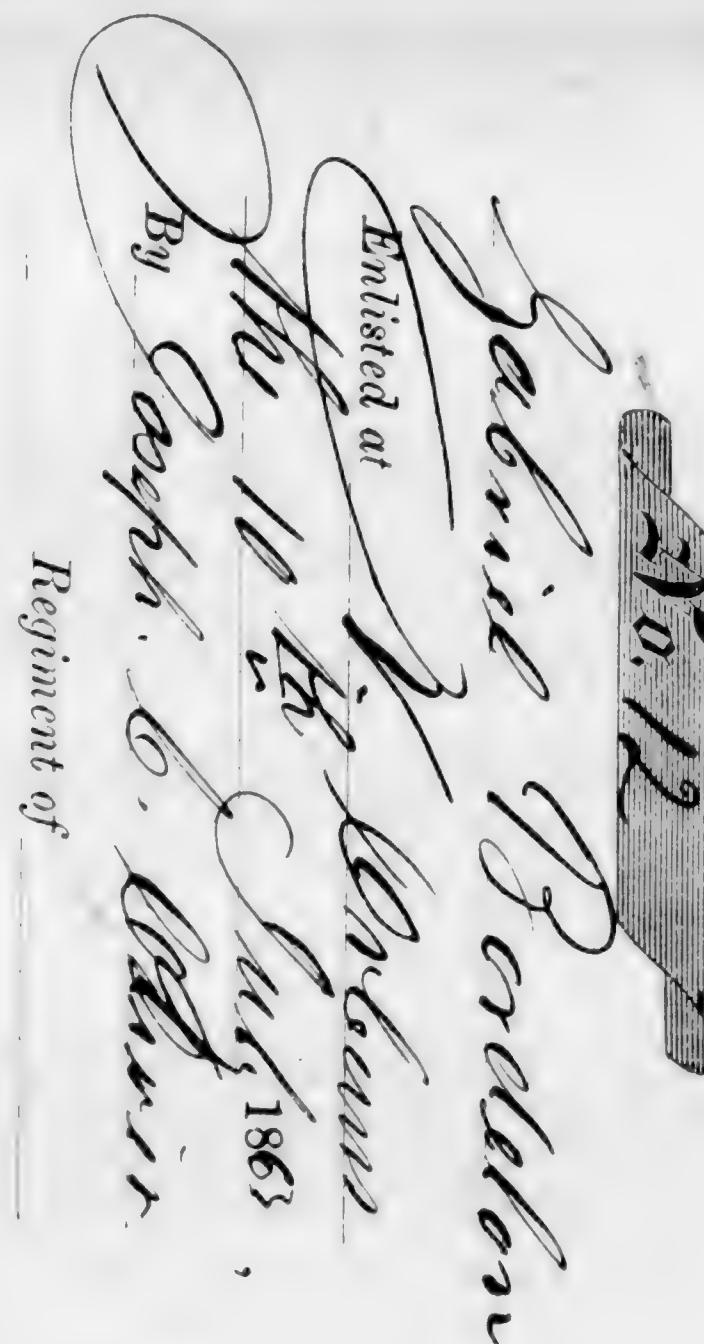 No. 12
Gabriel Bordelon
Enlisted at
N Orleans
the 10th July 1863,
By Joseph. C.
Regiment of